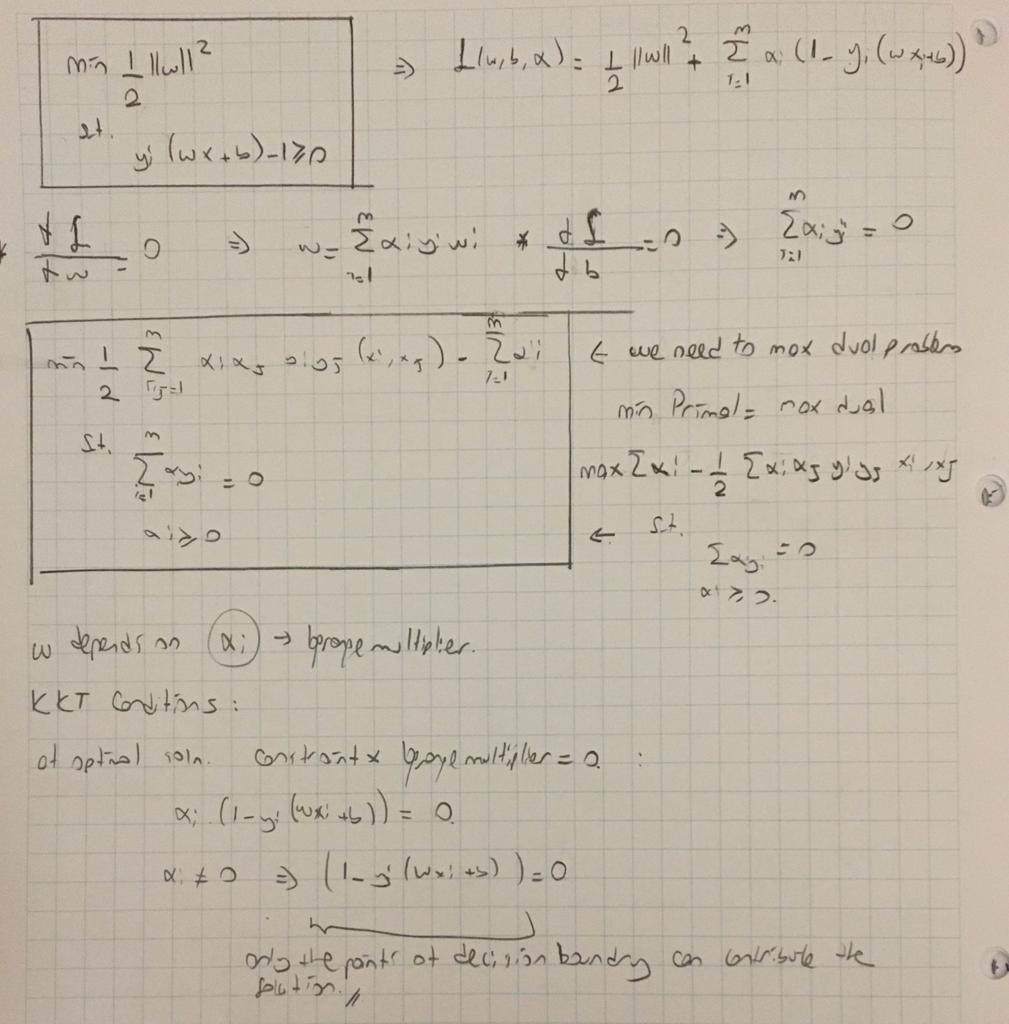 min 1/2 ||w||² ⇒ L(w,b,α) = 1/2 ||w||² + Σ_{i=1}^m αi (1 - yi (wxi+b))
st.
yi (wx+b) - 1 ≥ 0
* dL/dw = 0 ⇒ w = Σ_{i=1}^m αi yi wi * dL/db = 0 ⇒ Σ_{i=1}^m αi yi = 0
min 1/2 Σ_{i,j=1}^m αi αj yi yj (xi, xj) - Σ_{i=1}^m αi ← we need to max dual problem
min Primal = max dual
st. Σ_{i=1}^m αyi = 0
max Σαi - 1/2 Σαi αj yi yj xi, xj
αi ≥ 0
← st. Σαyi = 0
αi ≥ 0.
w depends on αi → lagrange multiplier.
KKT Conditions:
at optimal soln. constraint x lagrange multiplier = 0. :
αi (1 - yi (wxi + b)) = 0.
αi ≠ 0 ⇒ (1 - yi (wxi + b)) = 0
only the points at decision boundry can contribute the
solution. //